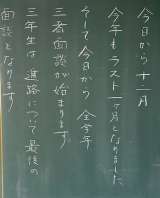 今日から十二月
今年もラスト一ヶ月となりました
そして今日から 全学年
三者面談が始まります
三年生は 進路について最後の
面談となります